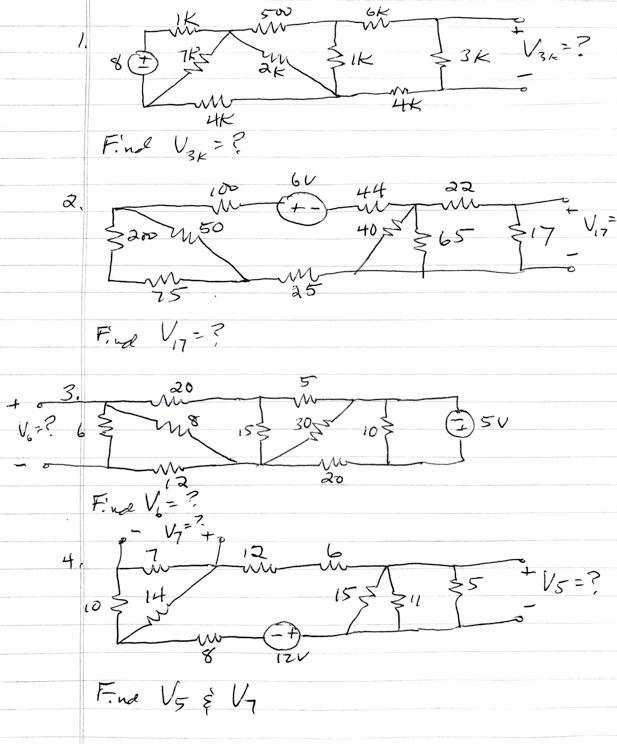 1K 500 6K
1. 8 7K 2K 1K 3K + V3K=? -
4K 4K
Find V3K = ?
100 6V 44 22
2. 200 50 + - 40 65 17 + V17= -
75 25
Find V17 = ?
3. 20 5
+ V6=? - 6 8 15 30 10 5V
12 20
Find V6 = ?
- V7=? +
4. 7 12 6
10 14 15 11 5 + V5=? -
8 - + 12V
Find V5 & V7